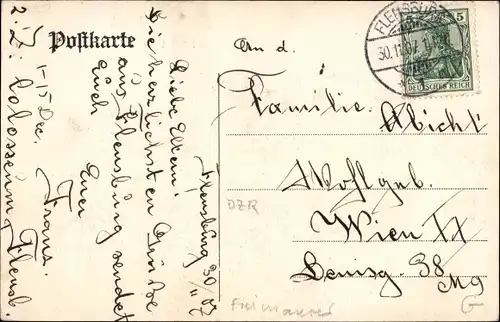 Postkarte
FLENSBURG
30.11.07
5
DEUTSCHES REICH
An d.
Familie Abicht
Wohlgeb.
Wien IX
Flensburg 30/11 07
Liebe Eltern!
Die herzlichsten Grüße
aus Flensburg sendet
Euch
Euer
Franz.
1-15 Dec.
Colosseum Flensb.
DZR